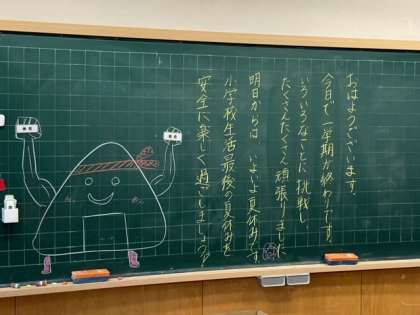 おはようございます。
今日で一学期が終わりです。
いろいろなことに挑戦し、
たくさんたくさん頑張りました
明日からは、いよいよ夏休みです
小学校生活最後の夏休みを
安全に楽しく過ごしましょう